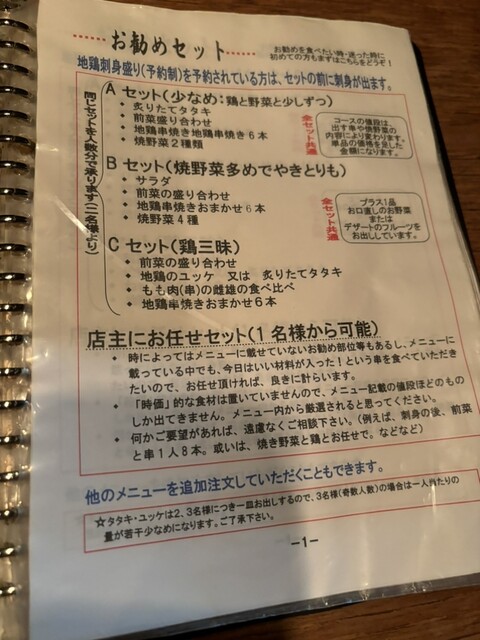 お勧めセット
お勧めを食べたい時・迷った時に
初めての方もまずはこちらをどうぞ！
地鶏刺身盛り(予約制)を予約されている方は、セットの前に刺身が出ます。
同じセットを人数分で承ります(二名様より)
A セット(少なめ：鶏と野菜と少しずつ)
・ 炙りたてタタキ
・ 前菜盛り合わせ
・ 地鶏串焼き地鶏串焼き６本
・ 焼野菜２種類
全セット共通
コースの値段は、
出す串や焼野菜の
内容により変わります。
単品の価格を足した
金額になります。
B セット(焼野菜多めでやきとりも)
・ サラダ
・ 前菜の盛り合わせ
・ 地鶏串焼きおまかせ６本
・ 焼野菜４種
全セット共通
プラス1品
お口直しのお野菜
または
デザートのフルーツを
お出ししています。
C セット(鶏三昧)
・ 前菜の盛り合わせ
・ 地鶏のユッケ 又は 炙りたてタタキ
・ もも肉(串)の雌雄の食べ比べ
・ 地鶏串焼きおまかせ６本
店主にお任せセット(１名様から可能)
・ 時によってはメニューに載せていないお勧め部位等もあるし、メニューに
載っている中でも、今日はいい材料が入った！という串を食べていただき
たいので、お任せ頂ければ、良きに計らいます。
・ 「時価」的な食材は置いていませんので、メニュー記載の値段ほどのもの
しか出てきません。メニュー内から厳選されると思ってください。
・ 何かご要望があれば、遠慮なくご相談下さい。(例えば、刺身の後、前菜
と串１人８本。或いは、焼き野菜と鶏とお任せで。などなど)
他のメニューを追加注文していただくこともできます。
☆タタキ・ユッケは2、3名様につき一皿お出しするので、3名様(奇数人数)の場合は一人当たりの
量が若干少なめになります。ご了承下さい。
－1－